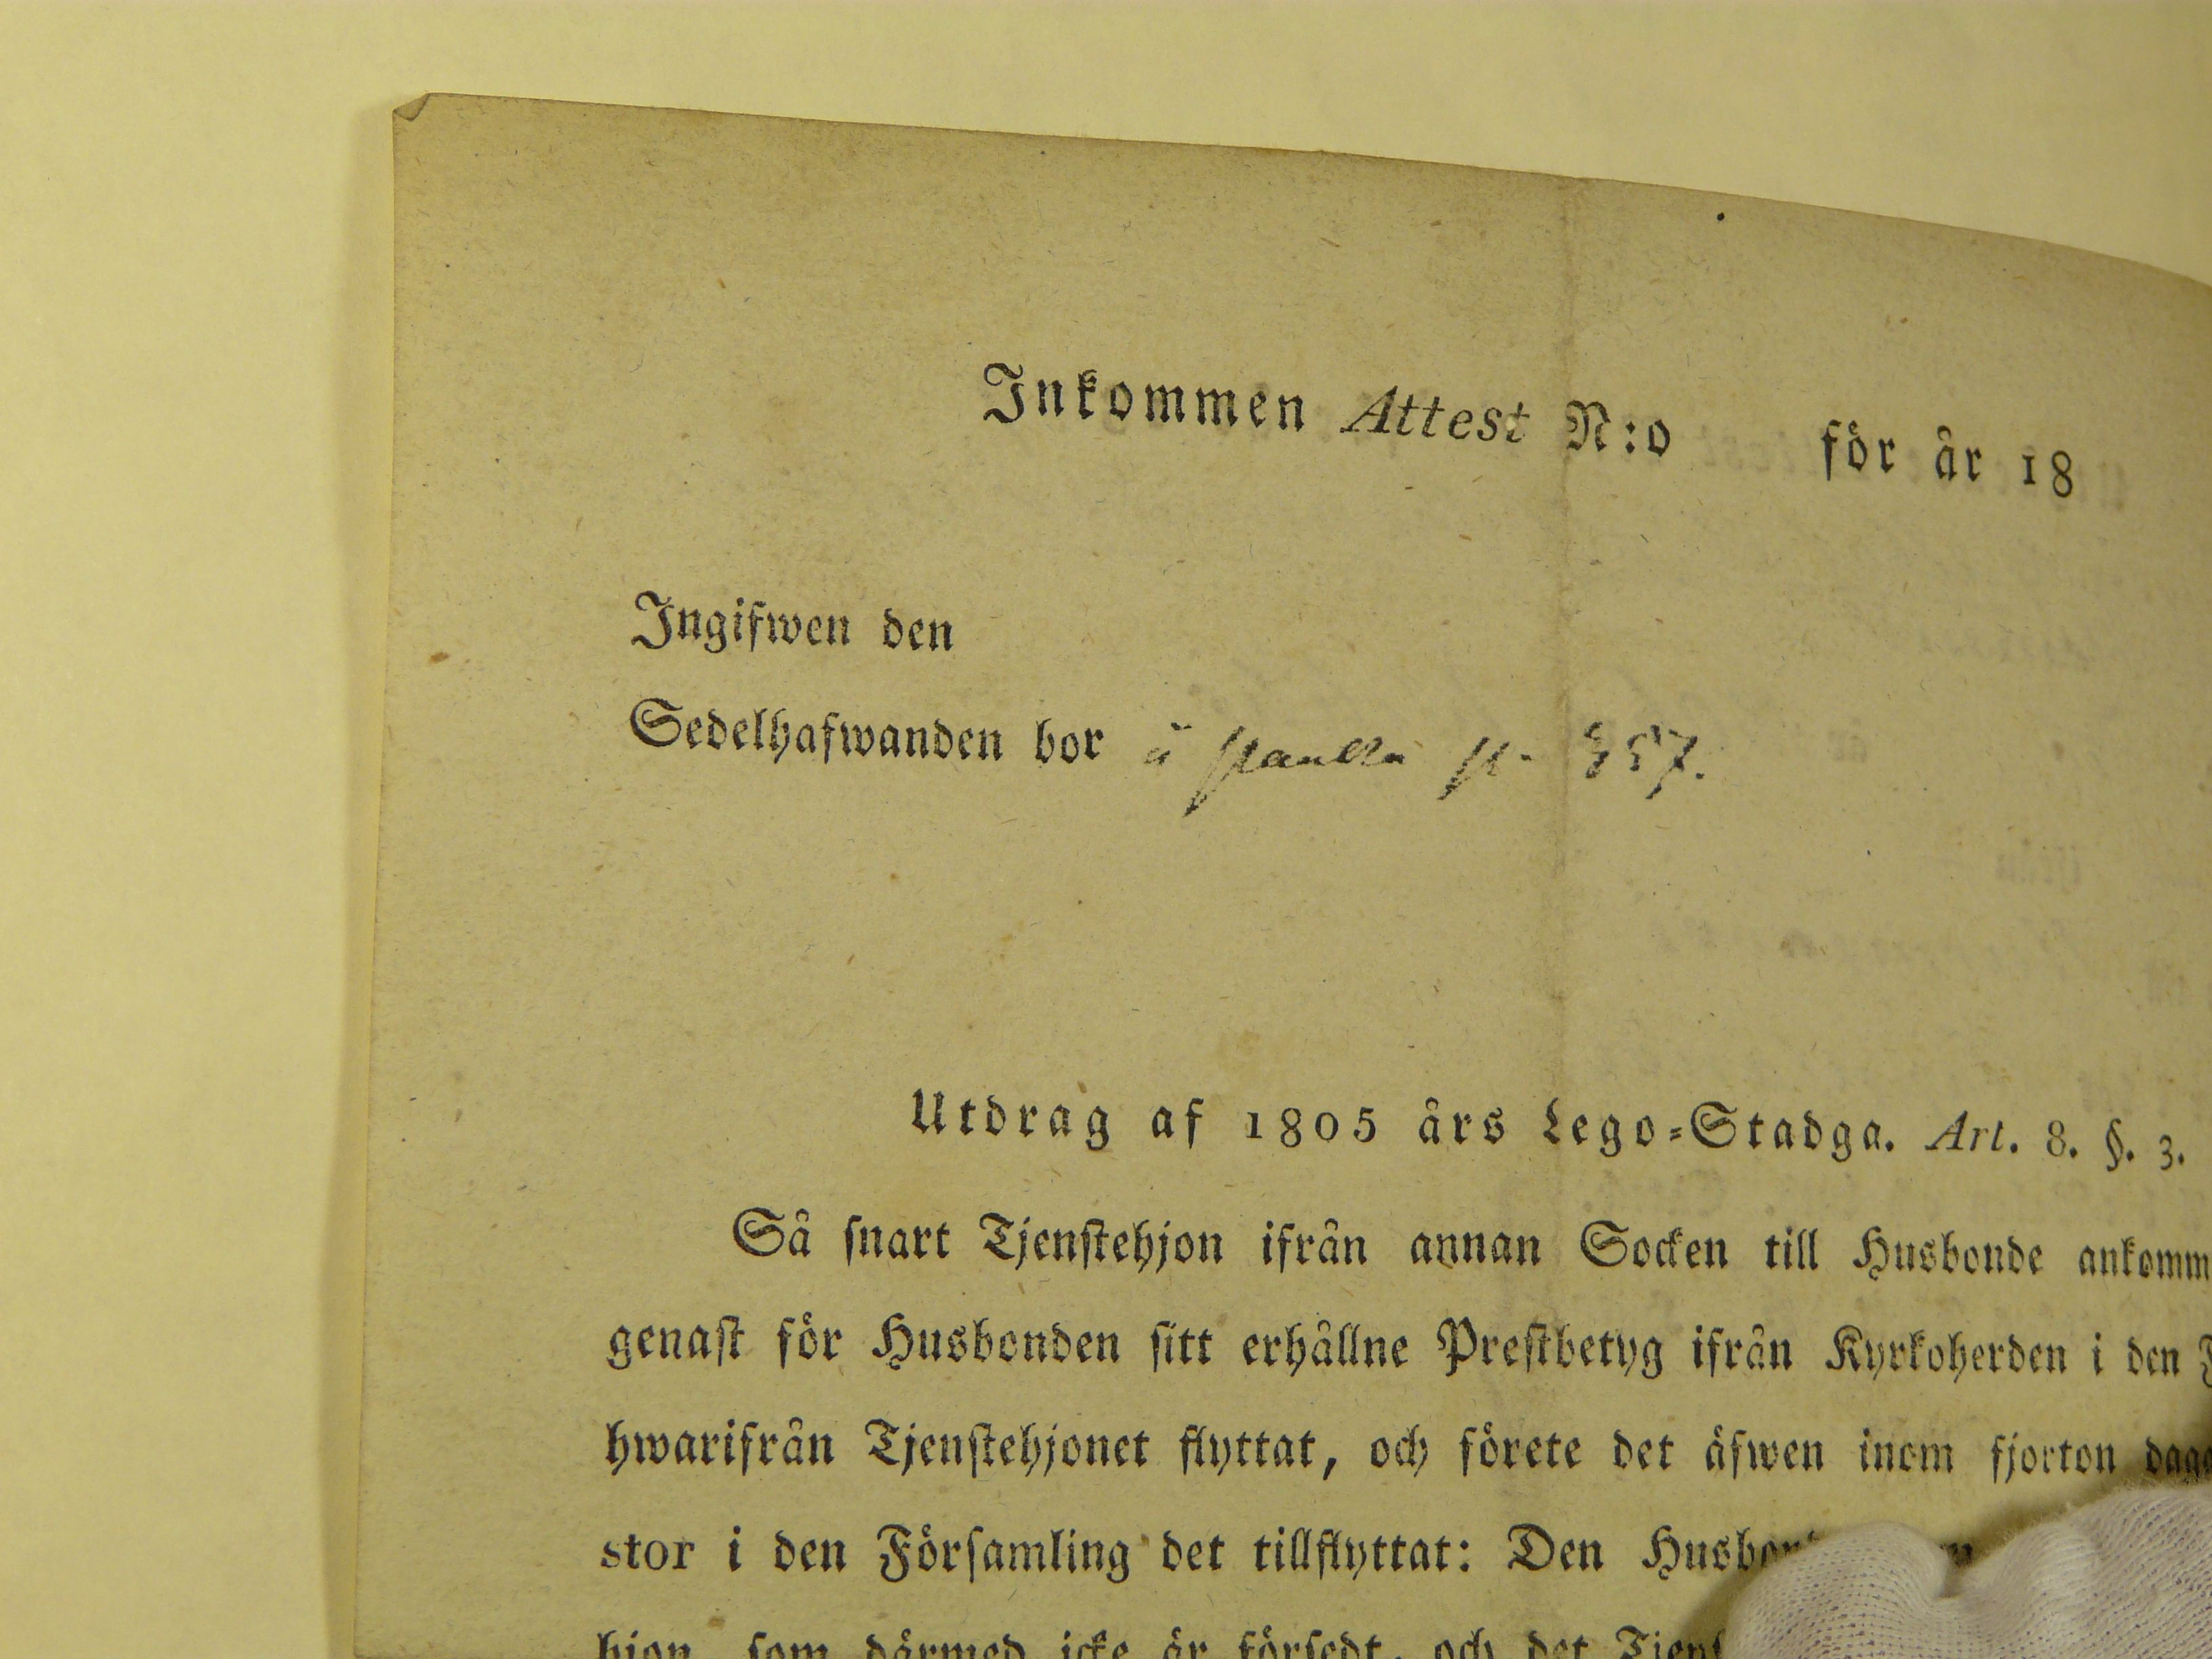 Inkommen Attest N:o för år 18
Ingifwen den
Sedelhafwanden bor å 357.
Utdrag af 1805 års Lego-Stadga. Art. 8. §. 3.
Så snart Tjenstehjon ifrån annan Socken till Husbonde ankomm
genast för Husbonden sitt erhållne Prestbetyg ifrån Kyrkoherden i den
hwarifrån Tjenstehjonet flyttat, och förete det äfwen inom fjorton dag
stor i den Församling det tillflyttat: Den
hjon som därmed icke är försedt, och det